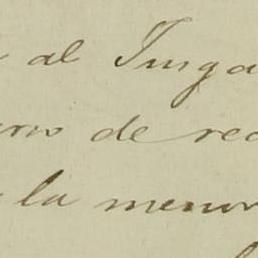 al Juzga
de rec
la menor